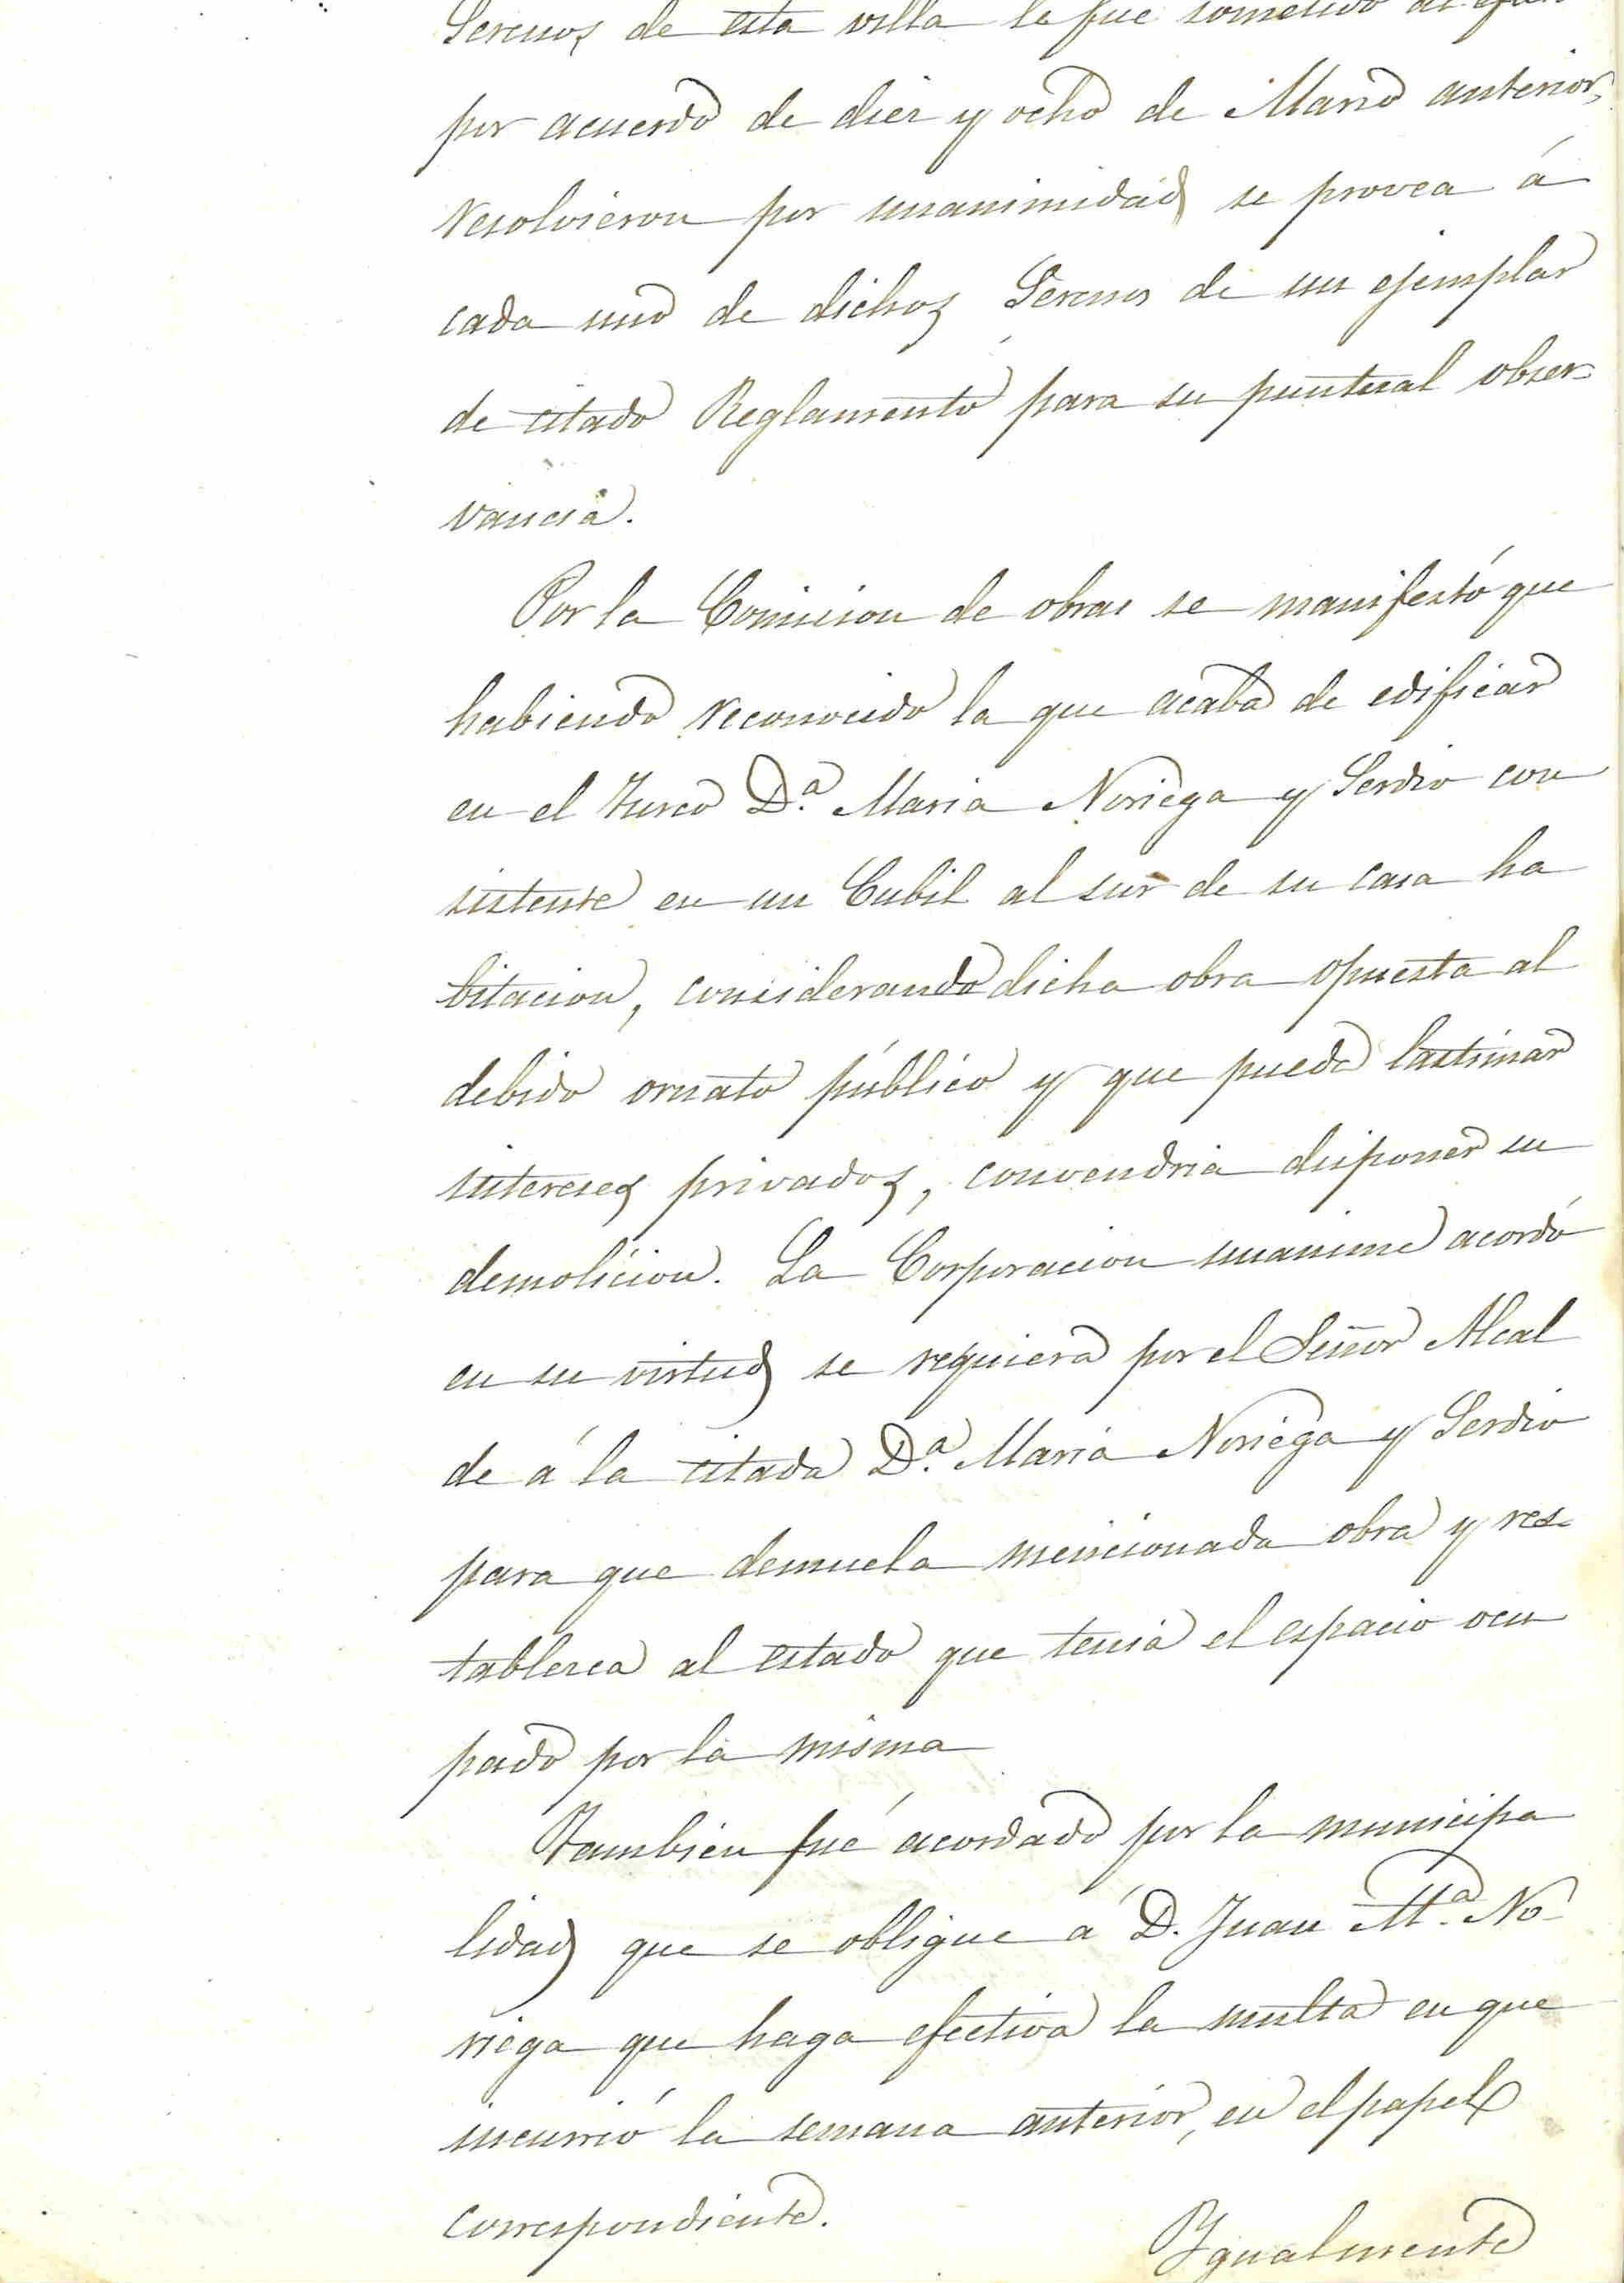 Serenos de esta villa le fue sometido al
por acuerdo de diez y ocho de Marzo anterior,
resolvieron por unanimidad se provea á
cada uno de dichos Serenos de un ejemplar
de citado Reglamento para su puntual obser-
vancia.
Por la Comision de obras se manifestó que
habiendo reconocido la que acaba de edificar
en el Turco D.ª Maria Noriega y Serdio con
sistente en un Cubil al sur de su casa ha
bitacion, considerando dicha obra opuesta al
debido ornato público y que puede lastimar
intereses privados, convendria disponer su
demolicion. La Corporacion unanime acordó
en su virtud se requiera por el Señor Alcal
de á la citada D.ª Maria Noriega y Serdio
para que demuela mencionada obra y res-
tablezca al estado que tenia el espacio ocu
pado por la misma
Tambien fué acordado por la municipa
lidad que se obligue á D. Juan M.ª No-
riega que haga efectiva la multa en que
incurrió la semana anterior, en el papel
correspondiente.
Ygualmente